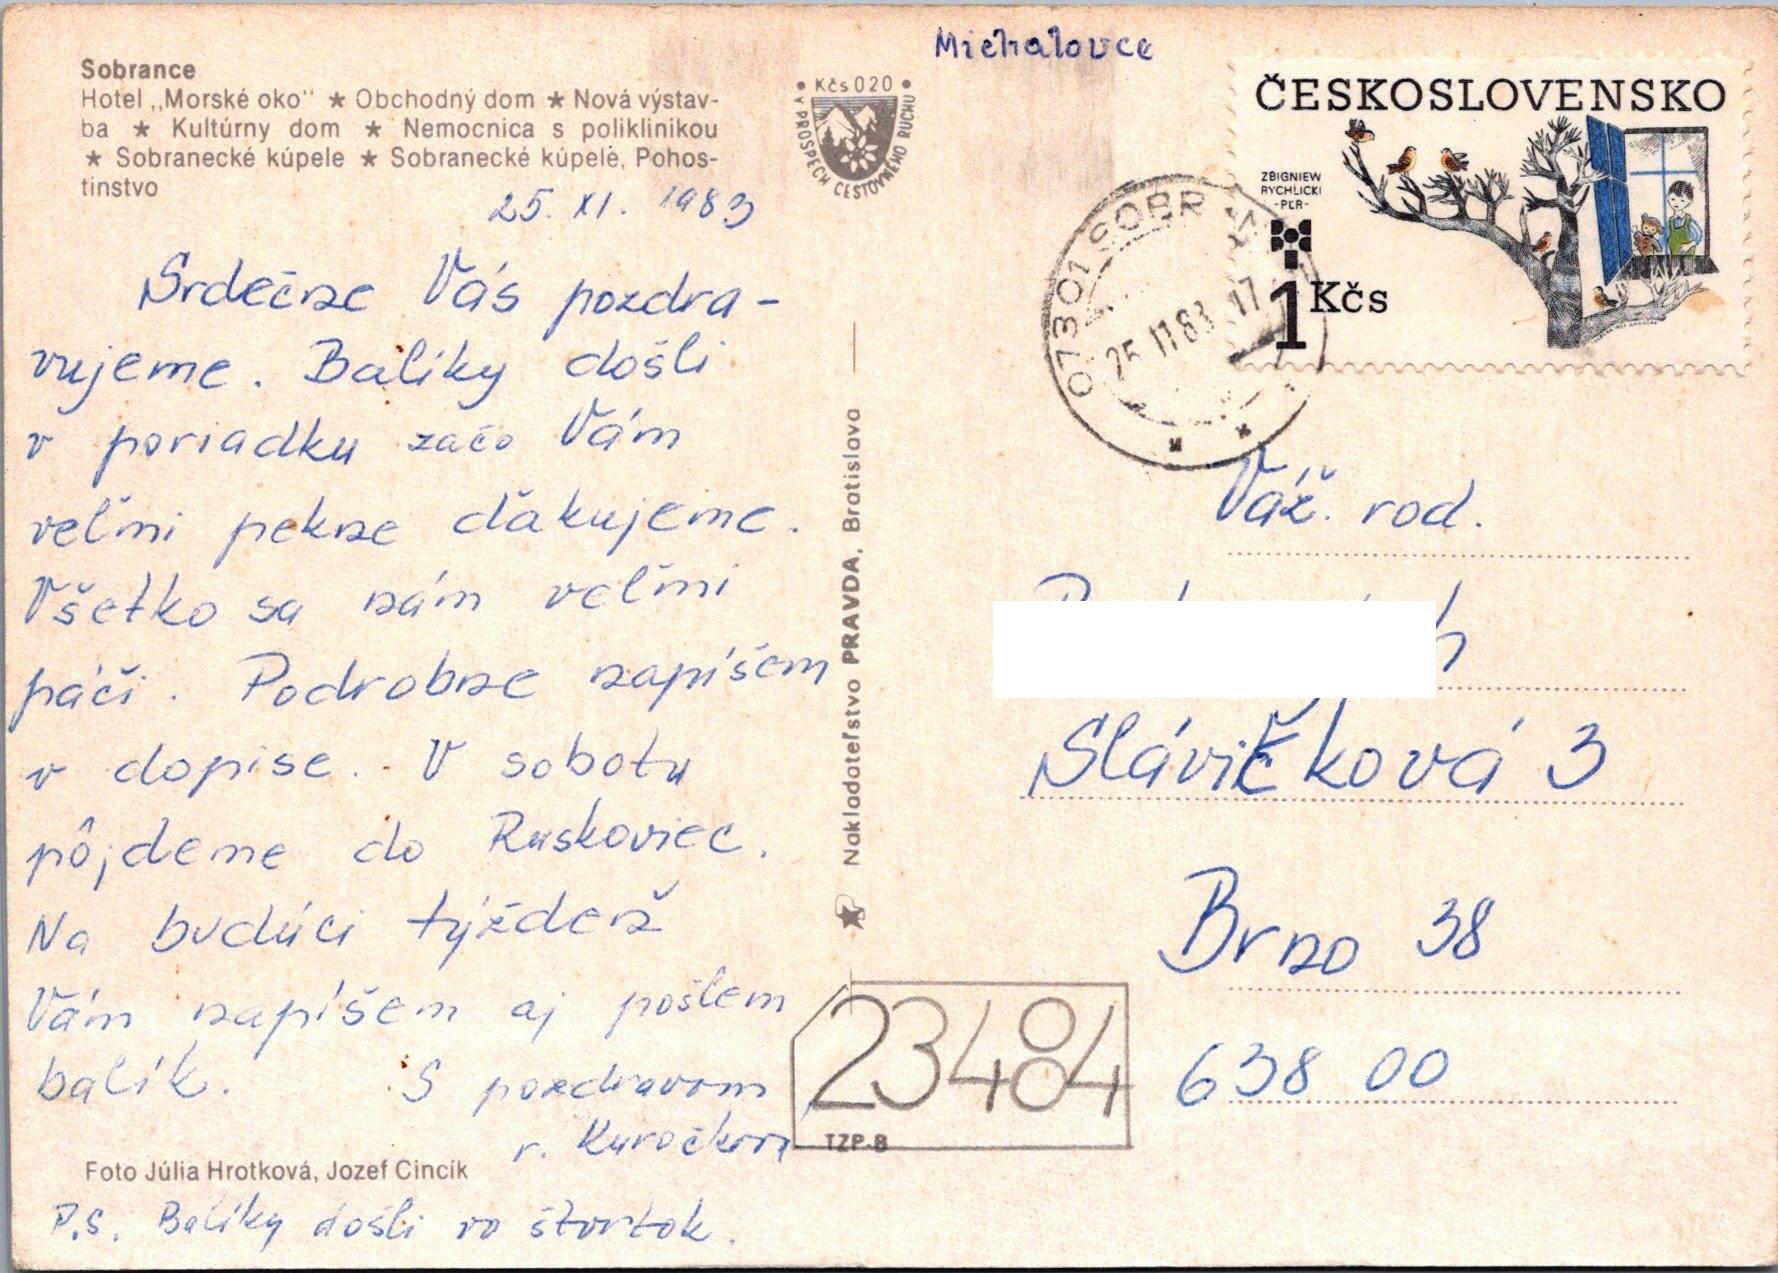 Michalovce
Sobrance
Hotel „Morské oko" ★ Obchodný dom ★ Nová výstav-
ba ★ Kultúrny dom ★ Nemocnica s poliklinikou
★ Sobranecké kúpele ★ Sobranecké kúpele, Pohos-
tinstvo
• Kčs 020 •
V PROSPECH CESTOVNÉHO RUCHU
25. XI. 1983
Srdečne Vás pozdra-
vujeme. Balíky došli
v poriadku začo Vám
veľmi pekne ďakujeme.
Všetko sa nám veľmi
páči. Podrobne napíšem
v dopise. V sobotu
pôjdeme do Ruskoviec.
Na budúci týždeň
Vám napíšem aj pošlem
balík. S pozdravom
r.
Foto Júlia Hrotková, Jozef Cincík
P.S. Balíky došli vo štvrtok.
Nakladateľstvo PRAVDA, Bratislava
ČESKOSLOVENSKO
ZBIGNIEW
RYCHLICKI
-PLR-
1 Kčs
073 01 SOBR
25. 11 83 17
Váž. rod.
Slávičková 3
Brno 38
638 00
23484
TZP-8